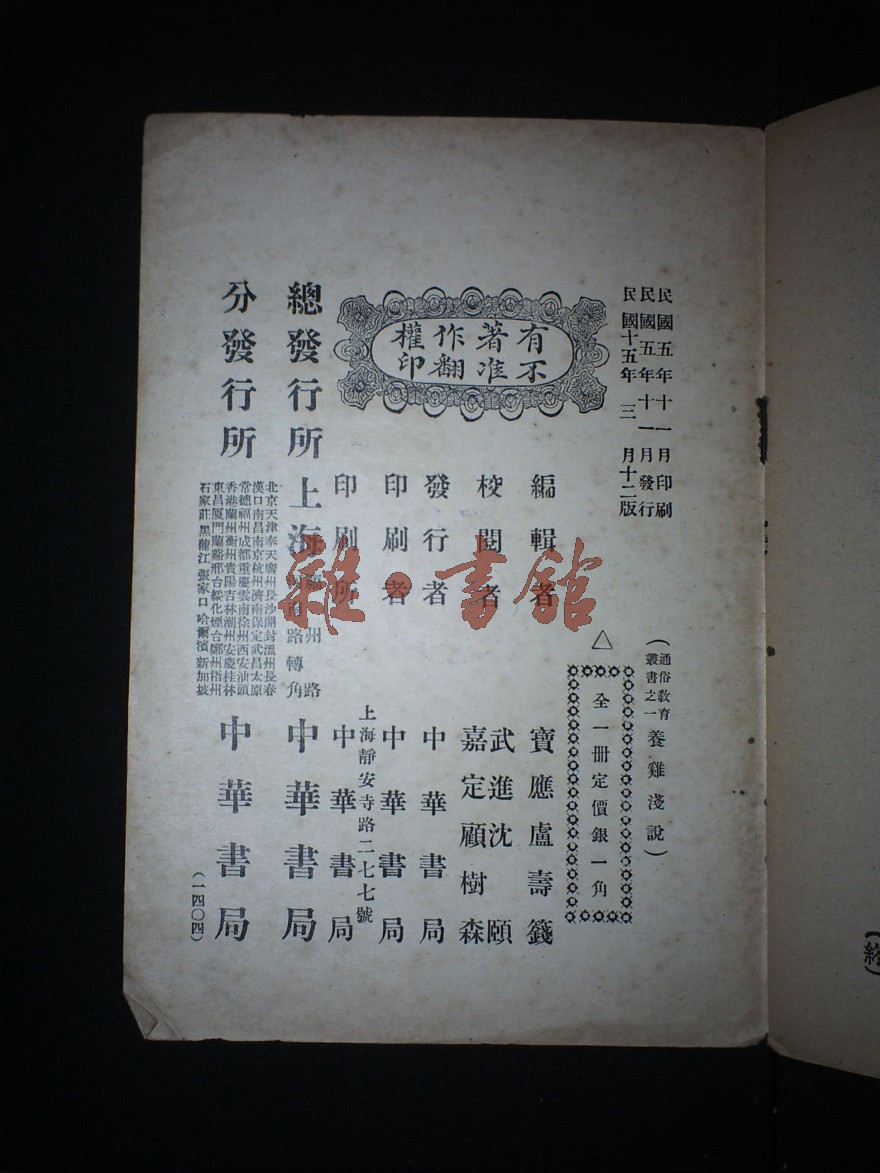 民國五年十一月印刷
民國五年十一月發行
民國十五年三月十二版
（通俗教育叢書之一養雞淺說）
全一冊定價銀一角
有著作權
不准翻印
編輯者 寶應盧壽籛
校閱者 武進沈頤
嘉定顧樹森
發行者 中華書局
印刷者 中華書局
上海靜安寺路二七七號
印刷所 中華書局
總發行所 上海 路轉角 中華書局
分發行所
北京天津奉天廣州長沙開封溫州長春
漢口南昌南京杭州濟南保定武昌太原
常德福州成都重慶雲南徐州西安汕頭
香港蘭州衡州貴陽吉林潮州安慶桂林
東昌厦門蘭谿邢台綏化煙台鄭州梧州
石家莊黑龍江張家口哈爾濱新加坡
中華書局
（一四〇四）
雜·書館